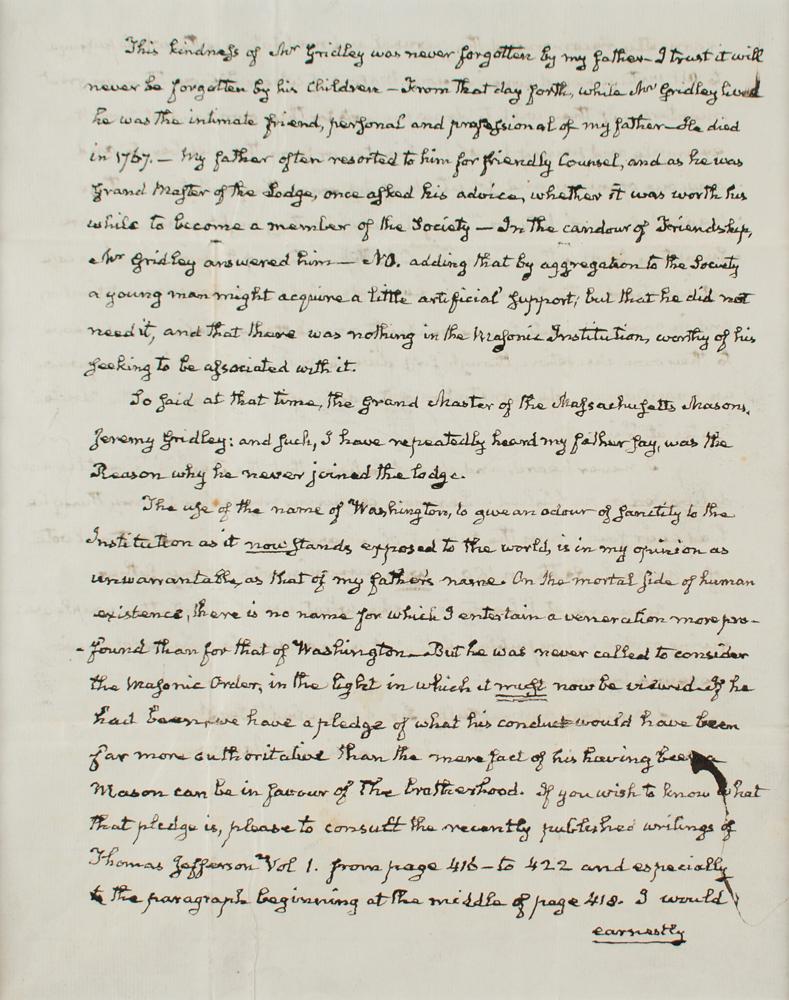 This kindness of Mr Gridley was never forgotten by my father – I trust it will
never be forgotten by his children – From that day forth, while Mr Gridley lived
he was the intimate friend, personal and professional of my father – He died
in 1767. – My father often resorted to him for friendly Counsel, and as he was
Grand Master of the Lodge, once asked his advice, whether it was worth his
while to become a member of the Society – In the candour of Friendship,
Mr Gridley answered him – No. adding that by aggregation to the Society
a young man might acquire a little artificial support; but that he did not
need it, and that there was nothing in the Masonic Institution, worthy of his
seeking to be associated with it.
So said at that time, the Grand Master of the Massachusetts Masons,
Jeremy Gridley: and such, I have repeatedly heard my father say, was the
Reason why he never joined the lodge.
The use of the name of Washington, to give an odour of sanctity to the
Institution as it now stands exposed to the world, is in my opinion as
unwarrantable, as that of my father's name. On the mortal side of human
existence, there is no name for which I entertain a veneration more pro-
-found than for that of Washington – But he was never called to consider
the Masonic Order, in the light in which it must now be viewed – If he
had been, we have a pledge of what his conduct would have been
far more authoritative than the mere fact of his having been a
Mason can be in favour of the brotherhood. If you wish to know what
that pledge is, please to consult the recently published writings of
Thomas Jefferson Vol 1. from page 416 – to 422 and especially
the paragraph beginning at the middle of page 418. I would
earnestly